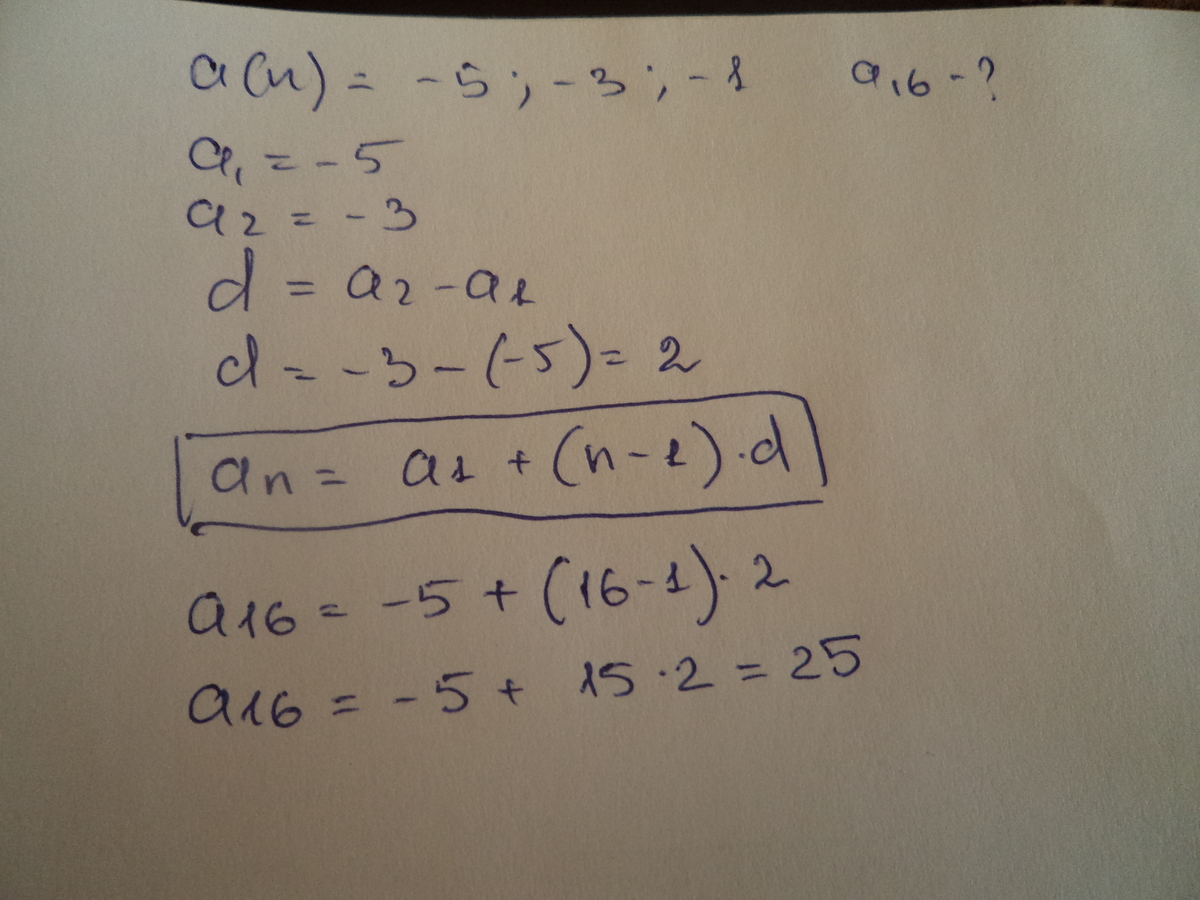 a(n) = -5 ; -3 ; -1 a₁₆ - ?
a₁ = -5
a₂ = -3
d = a₂ - a₁
d = -3 - (-5) = 2
aₙ = a₁ + (n-1)·d
a₁₆ = -5 + (16-1)·2
a₁₆ = -5 + 15·2 = 25